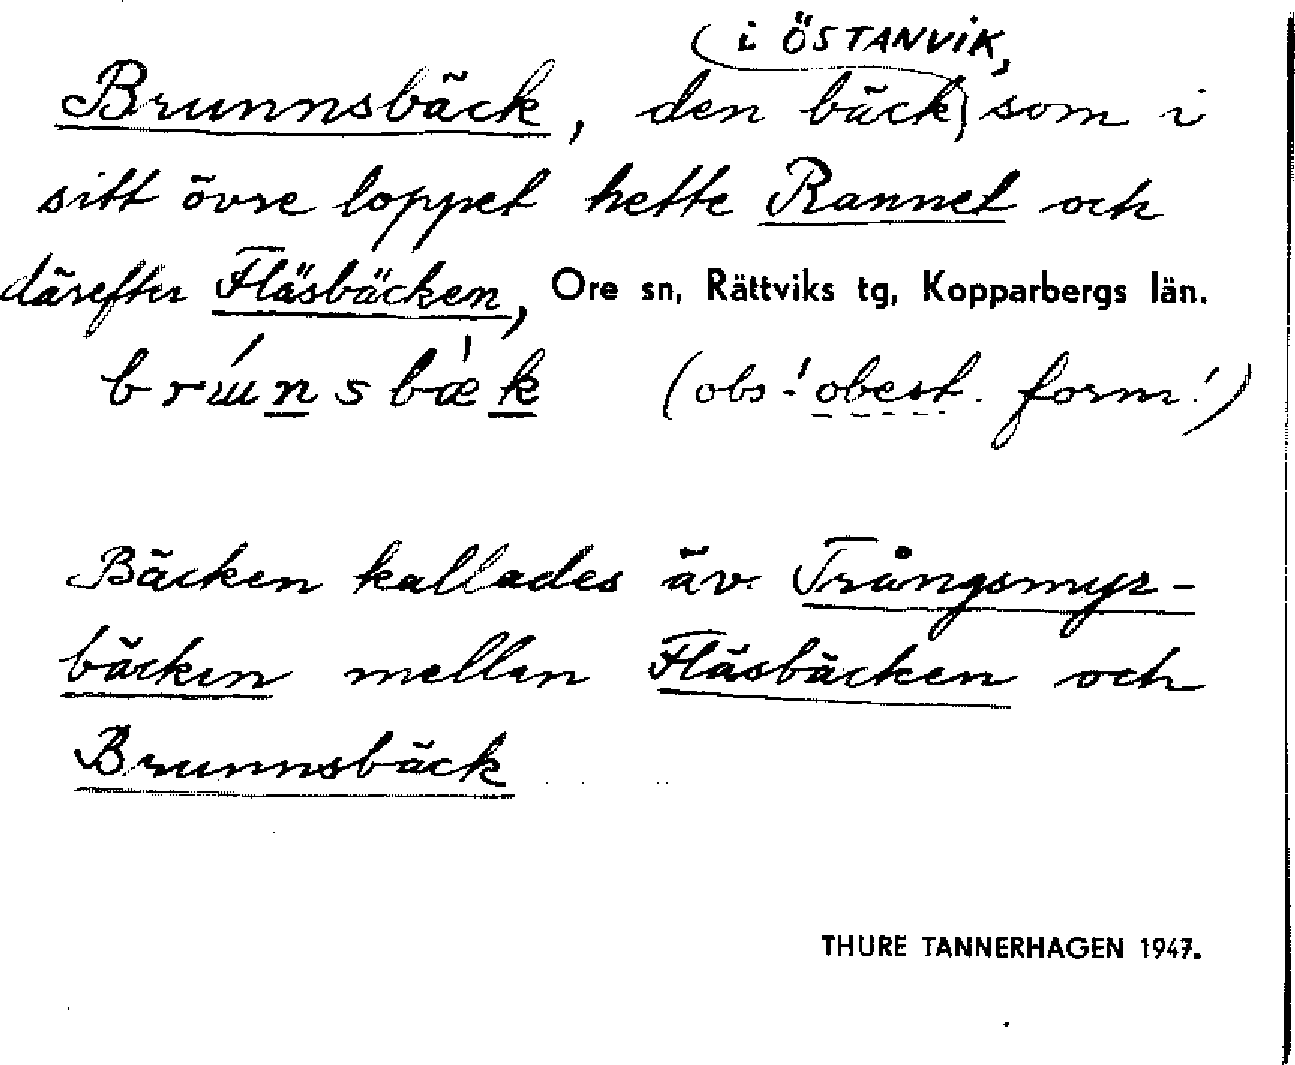 (i ÖSTANVIK,
Brunnsbäck, den bäck) som i
sitt övre loppet hette Rannet och
därefter Fläsbäcken, Ore sn, Rättviks tg, Kopparbergs län.
(obs! obest. form!)
Bäcken kallades äv. Trångsmyr-
bäcken mellan Fläsbäcken och
Brunnsbäck
THURE TANNERHAGEN 1947.